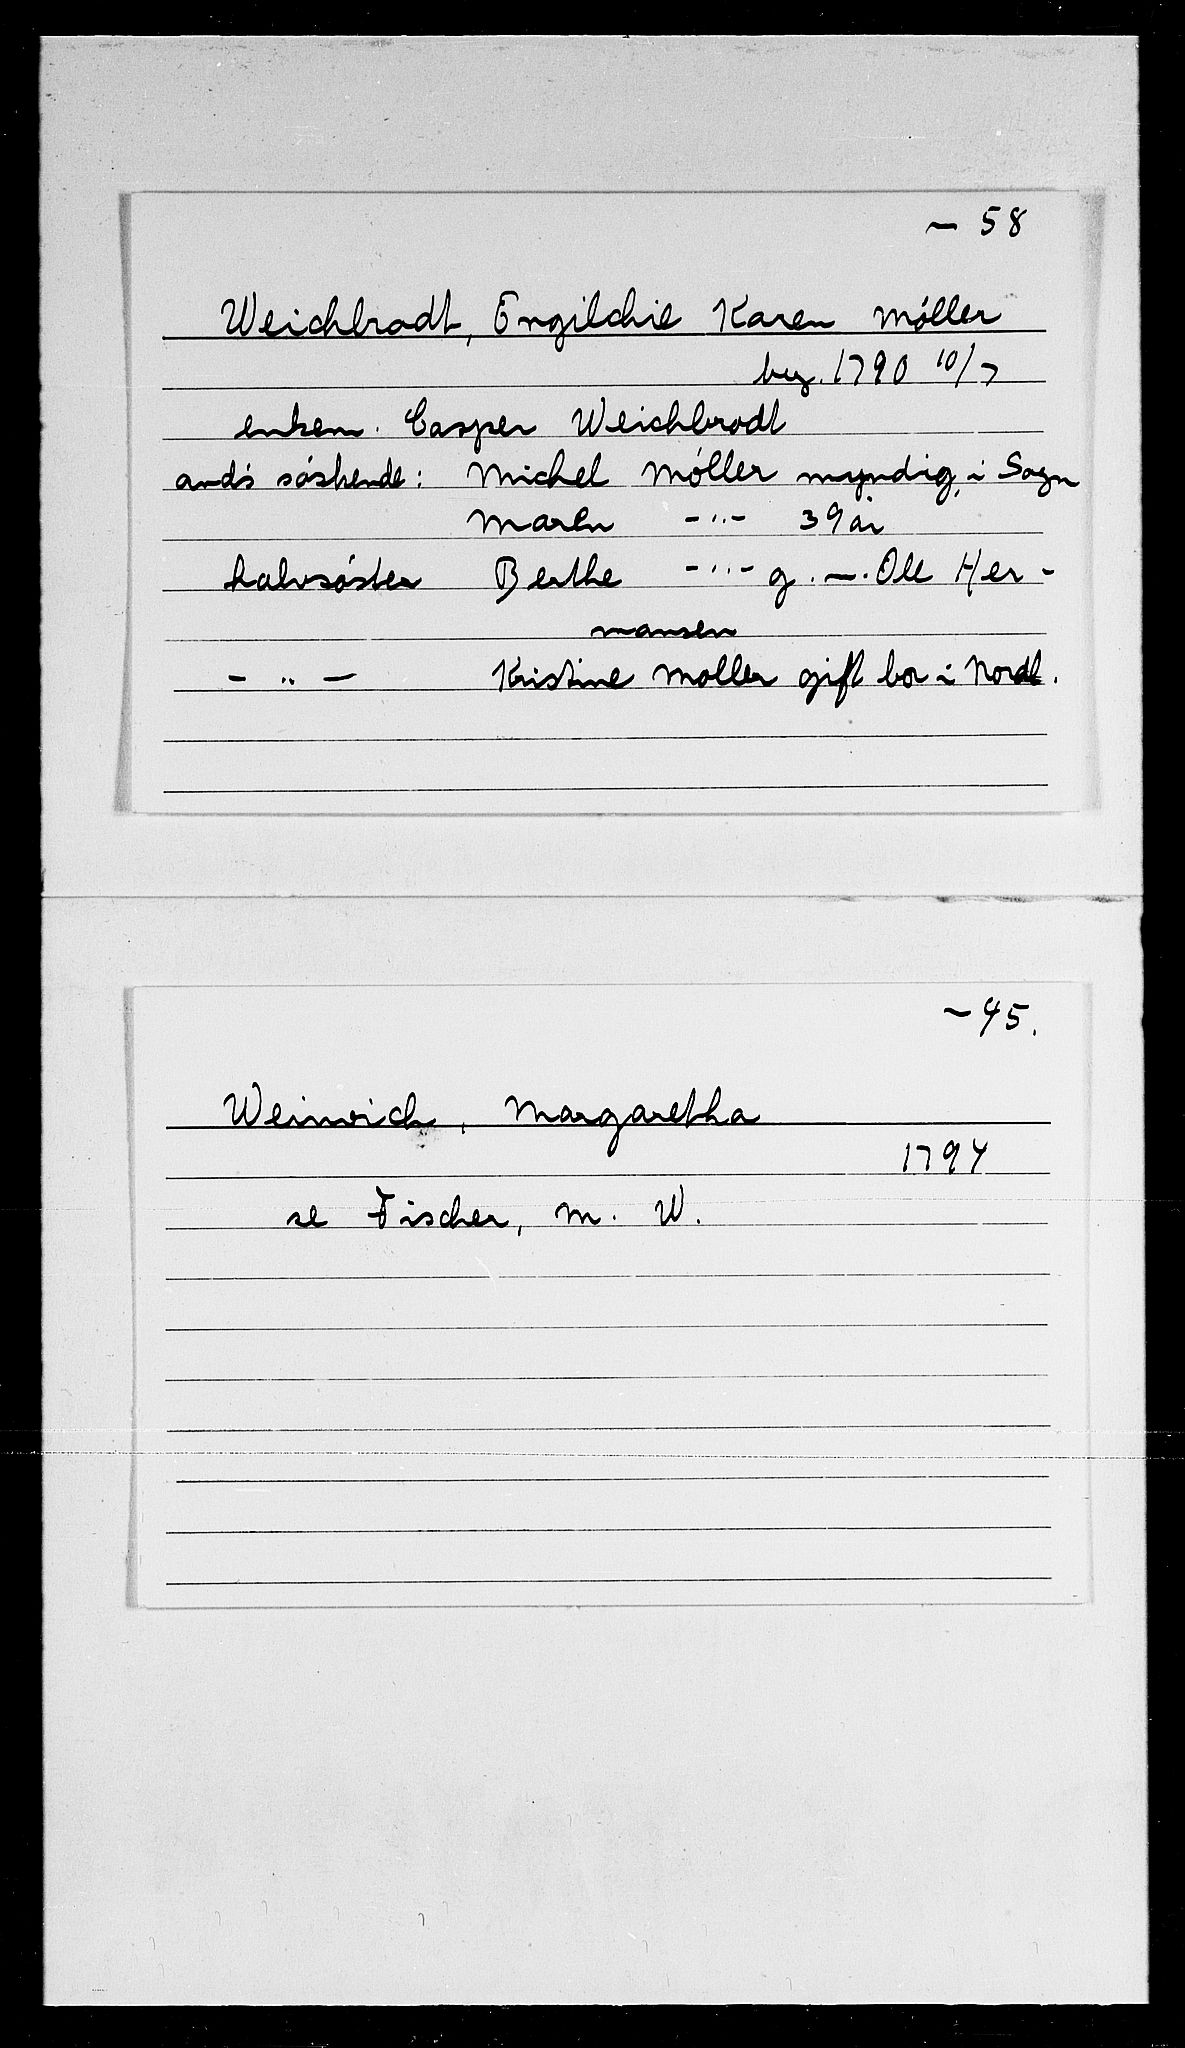 ~ 58
Weichbrodt, Engilchie Karen Møller
beg. 1790 10/7
enkem. Casper Weichbrodt
avd's søskende: Michel Møller myndig, i Sogn
Maren -"- 39 år
halvsøster Berthe -"- g. —. Ole Her-
mansen
- " - Kristine Møller gift bor i Nordl.
~ 45.
Weinwich, Margaretha
1794
se Fischer, M. W.